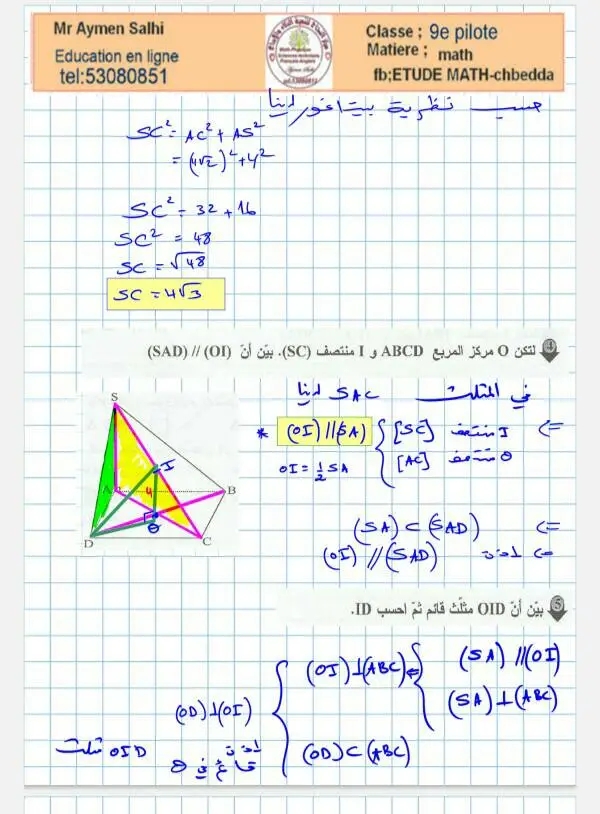 Mr Aymen Salhi
Education en ligne
tel:53080851
Classe ; 9e pilote
Matiere ; math
fb;ETUDE MATH-chbedda
حسب نظرية بيتاغور لدينا
SC² = AC² + AS²
= (4√2)² + 4²
SC² = 32 + 16
SC² = 48
SC = √48
SC = 4√3
④ لتكن O مركز المربع ABCD و I منتصف (SC). بيّن أنّ (OI) // (SAD)
في المثلث SAC لدينا
I منتصف [SC]
O منتصف [AC]
=> (OI) // (SA) *
OI = 1/2 SA
=> (SA) ⊂ (SAD)
=> اذن (OI) // (SAD)
S
I
4
A
B
O
D
C
⑤ بيّن أنّ OID مثلّث قائم ثمّ احسب ID.
(SA) // (OI)
(SA) ⊥ (ABC)
=> (OI) ⊥ (ABC)
(OD) ⊂ (ABC)
(OD) ⊥ (OI)
اذن
OID مثلث قائم في O